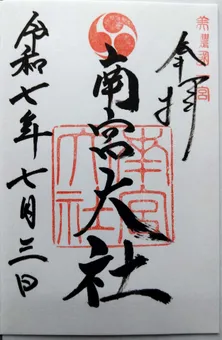 美濃國一宮
奉拝
南宮大社
南宮大社
令和七年七月三日